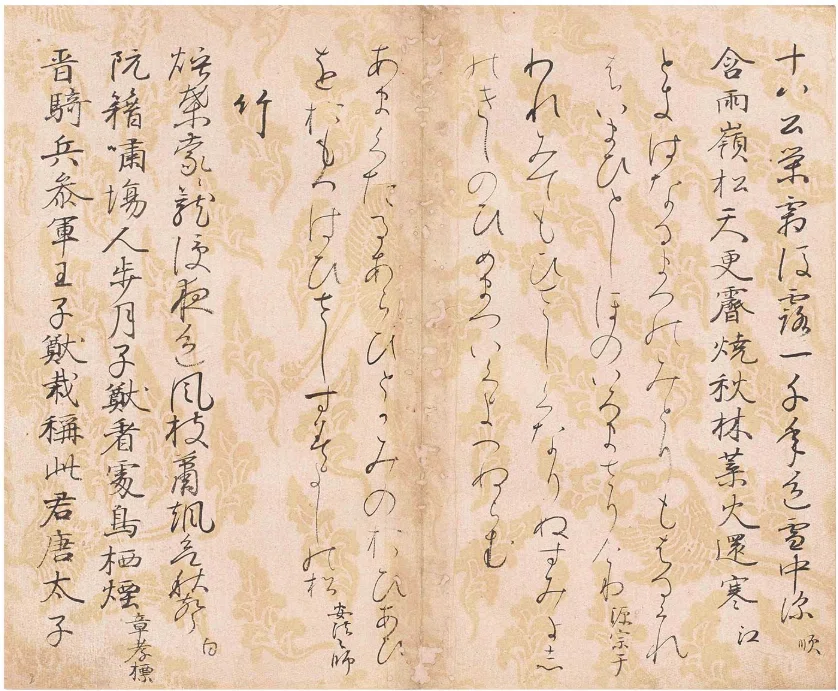 十八公榮霜後露一千年色雪中深 順
含雨嶺松天更霽焼秋林葉火還寒 江
ときはなるまつのみとりもはるくれ
はいまひとしほのいろまさりけり 源宗于
われみてもひさしくなりぬすみよし
のきしのひめまついくよへぬらむ
あまくたるあらひとかみのおひあひ
をおもへはひさしすみよしの松 安法々師
竹
煙葉蒙籠侵夜色風枝蕭颯欲秋聲 白
阮籍嘯場人歩月子猷看處鳥栖煙 章孝標
晋騎兵参軍王子猷栽稱此君唐太子